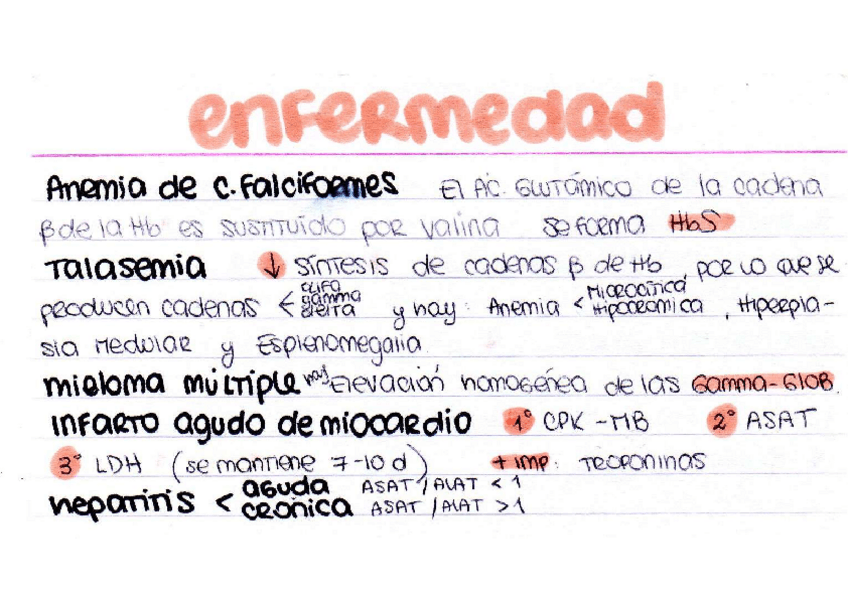 enfermedad
Anemia de c. falciformes El Ác. Glutámico de la cadena
β de la Hb es sustituído por valina se forma HbS
Talasemia ↓ síntesis de cadenas β de Hb, por lo que se
producen cadenas < alfa gamma delta y hay: Anemia < Microcítica Hipocromica, Hiperpla-
sia medular y Esplenomegalia
mieloma múltiple hay Elevación homogénea de las Gamma-Glob.
Infarto agudo de miocardio 1º CPK-MB 2º ASAT
3º LDH (se mantiene 7-10 d) + imp: Troponinas
hepatitis < aguda ASAT/ALAT < 1
cronica ASAT/ALAT > 1